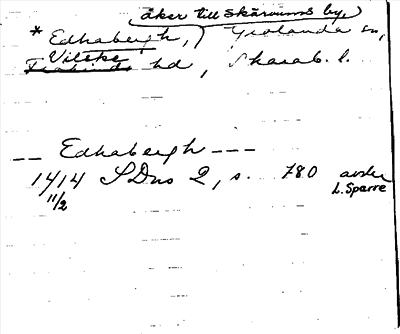 åker till Skärvums by,
* Edhabergh, Grolanda sn,
Vilske
Frökinds hd, Skarab. l.
-- Edhabergh ---
1414 SDns 2, s. 780 avskr
11/2 L. Sparre